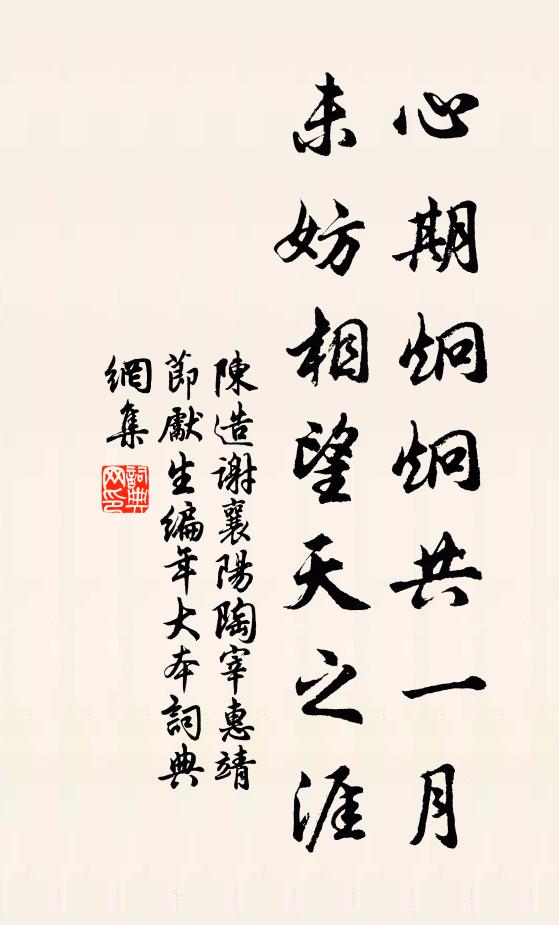 心期炯炯共一月
未妨相望天之涯
陳造謝襄陽陶宰惠靖
節獻生編年大本詞典
網集
詞典
网印